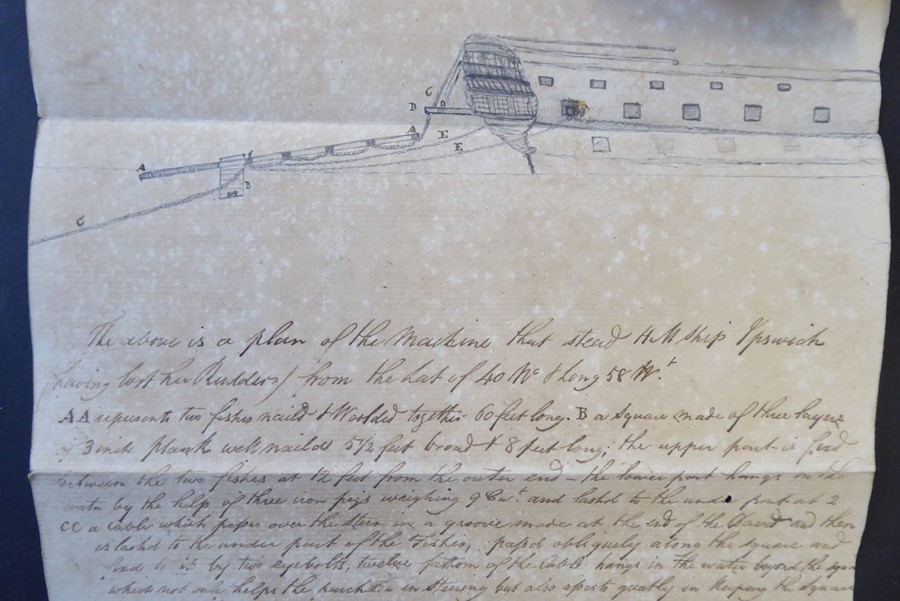 C
D
A
E
E
A
B
C
The above is a plan of the Machine that steed H M Ship Ipswich
(having lost her Rudder) from the Lat of 40 No & Long 58 Wt.
AA represents two fishes naild & Woolded together 60 feet long. B a square made of three layers
of 3 inch plank well naild 5 1/2 feet broad & 8 feet long; the upper part is fixd
between the two fishes at 12 feet from the outer end - the lower part hangs in the
water by the help of three iron pigs weighing 9 Cwt and lashd to the under part at 2
CC a Cable which passes over the Stern in a groove made at the end of the Davit and then
is lashd to the under part of the Fishes, passd obliquely along the square and
to it by two eyebolts, twelve fathom of the Cable hangs in the water beyond the square
which not only helps the purchase in steering but also assists greatly in keeping the Square